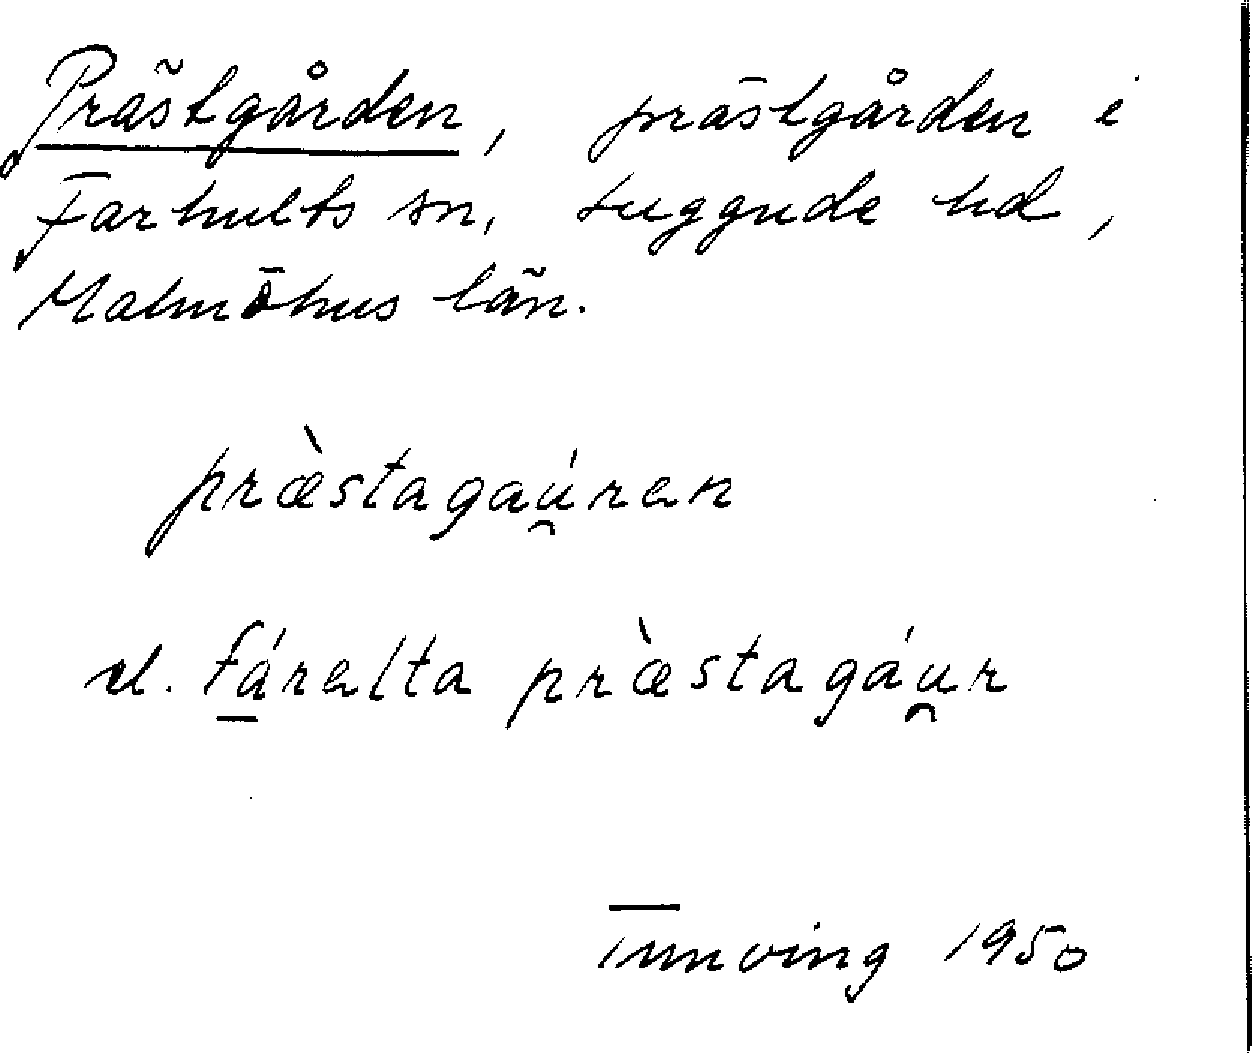 Prästgården, prästgården i
Farhults sn, Luggude hd,
Malmöhus län.
præ̀stagaú̯ren
el. fá̱relta præ̀stagáu̯r
1950